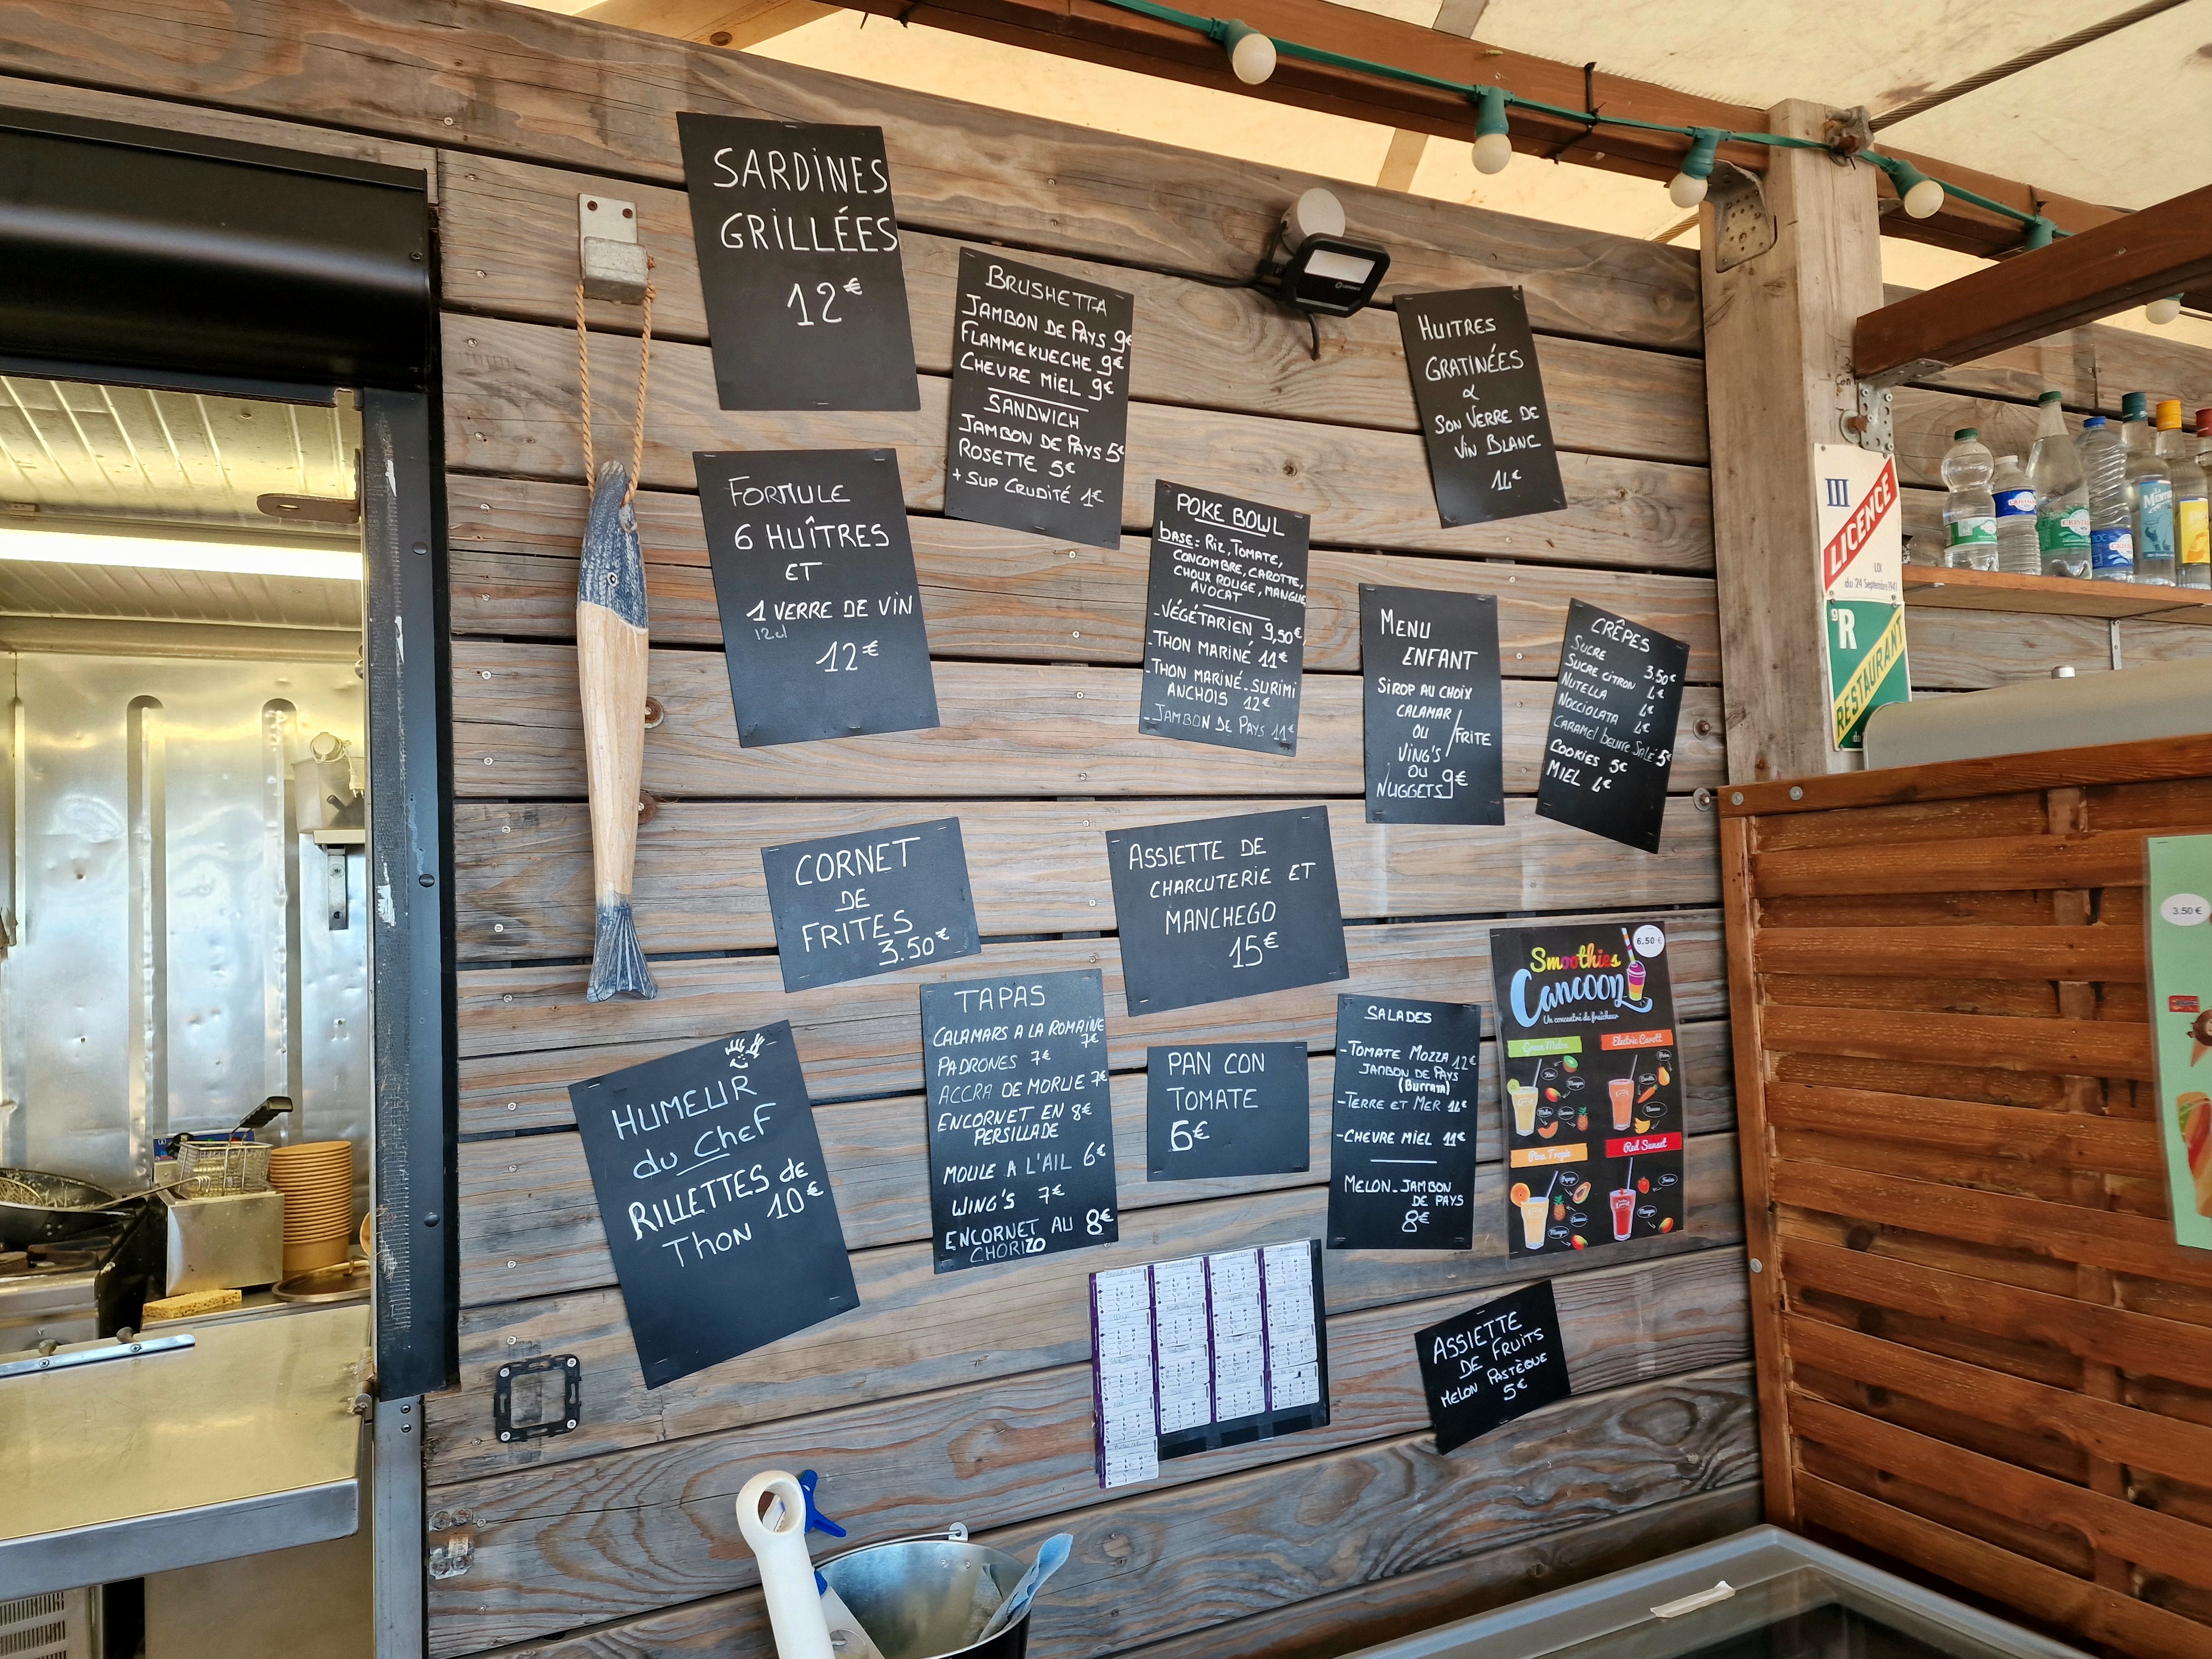 SARDINES
GRILLÉES
12€
BRUSHETTA
JAMBON DE PAYS 9€
FLAMMEKUECHE 9€
CHEVRE MIEL 9€
SANDWICH
JAMBON DE PAYS 5€
ROSETTE 5€
+ SUP CRUDITÉ 1€
HUITRES
GRATINÉES
&
SON VERRE DE
VIN BLANC
14€
FORMULE
6 HUÎTRES
ET
1 VERRE DE VIN
12cl
12€
POKE BOWL
base: RIZ, TOMATE,
CONCOMBRE, CAROTTE,
CHOUX ROUGE, MANGUE
AVOCAT
-VÉGÉTARIEN 9,50€
-THON MARINÉ 11€
-THON MARINÉ-SURIMI
ANCHOIS 12€
-JAMBON DE PAYS 11€
MENU
ENFANT
SIROP AU CHOIX
CALAMAR
OU
VING'S /FRITE
OU
NUGGETS 9€
CRÊPES
SUCRE 3.50€
SUCRE CITRON 4€
NUTELLA 4€
NOCCIOLATA 4€
CARAMEL beurre SALÉ 5€
COOKIES 5€
MIEL 4€
III
LICENCE
LOI
du 24 Septembre 1941
gR
RESTAURANT
CORNET
DE
FRITES
3.50€
ASSIETTE DE
CHARCUTERIE ET
MANCHEGO
15€
HUMEUR
du Chef
RILLETTES de
THON 10€
TAPAS
CALAMARS A LA ROMAINE
7€
PADRONES 7€
ACCRA DE MORUE 7€
ENCORNET EN 8€
PERSILLADE
MOULE A L'AIL 6€
WING'S 7€
ENCORNET AU 8€
CHORIZO
PAN CON
TOMATE
6€
SALADES
-TOMATE MOZZA 12€
JAMBON DE PAYS
(BURRATA)
-TERRE ET MER 14€
-CHEVRE MIEL 11€
MELON-JAMBON
DE PAYS
8€
6.50 €
Smoothies
Cancoon
Un concentré de fraîcheur
Green Melon
Electric Carott
Pina Tropic
Red Sunset
3.50 €
ASSIETTE
DE FRUITS
MELON PASTÈQUE
5€